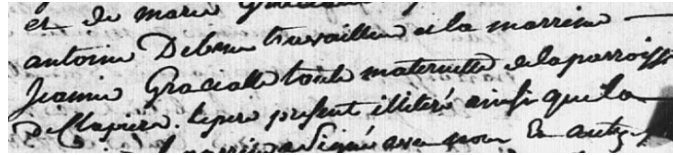 et de marie
antoine Debru travailleur et la marrine
Jeanne Gracialle tante maternelle de la parroisse
De Clapiers, le pere present illiteré ainsi que la
signé avec nous